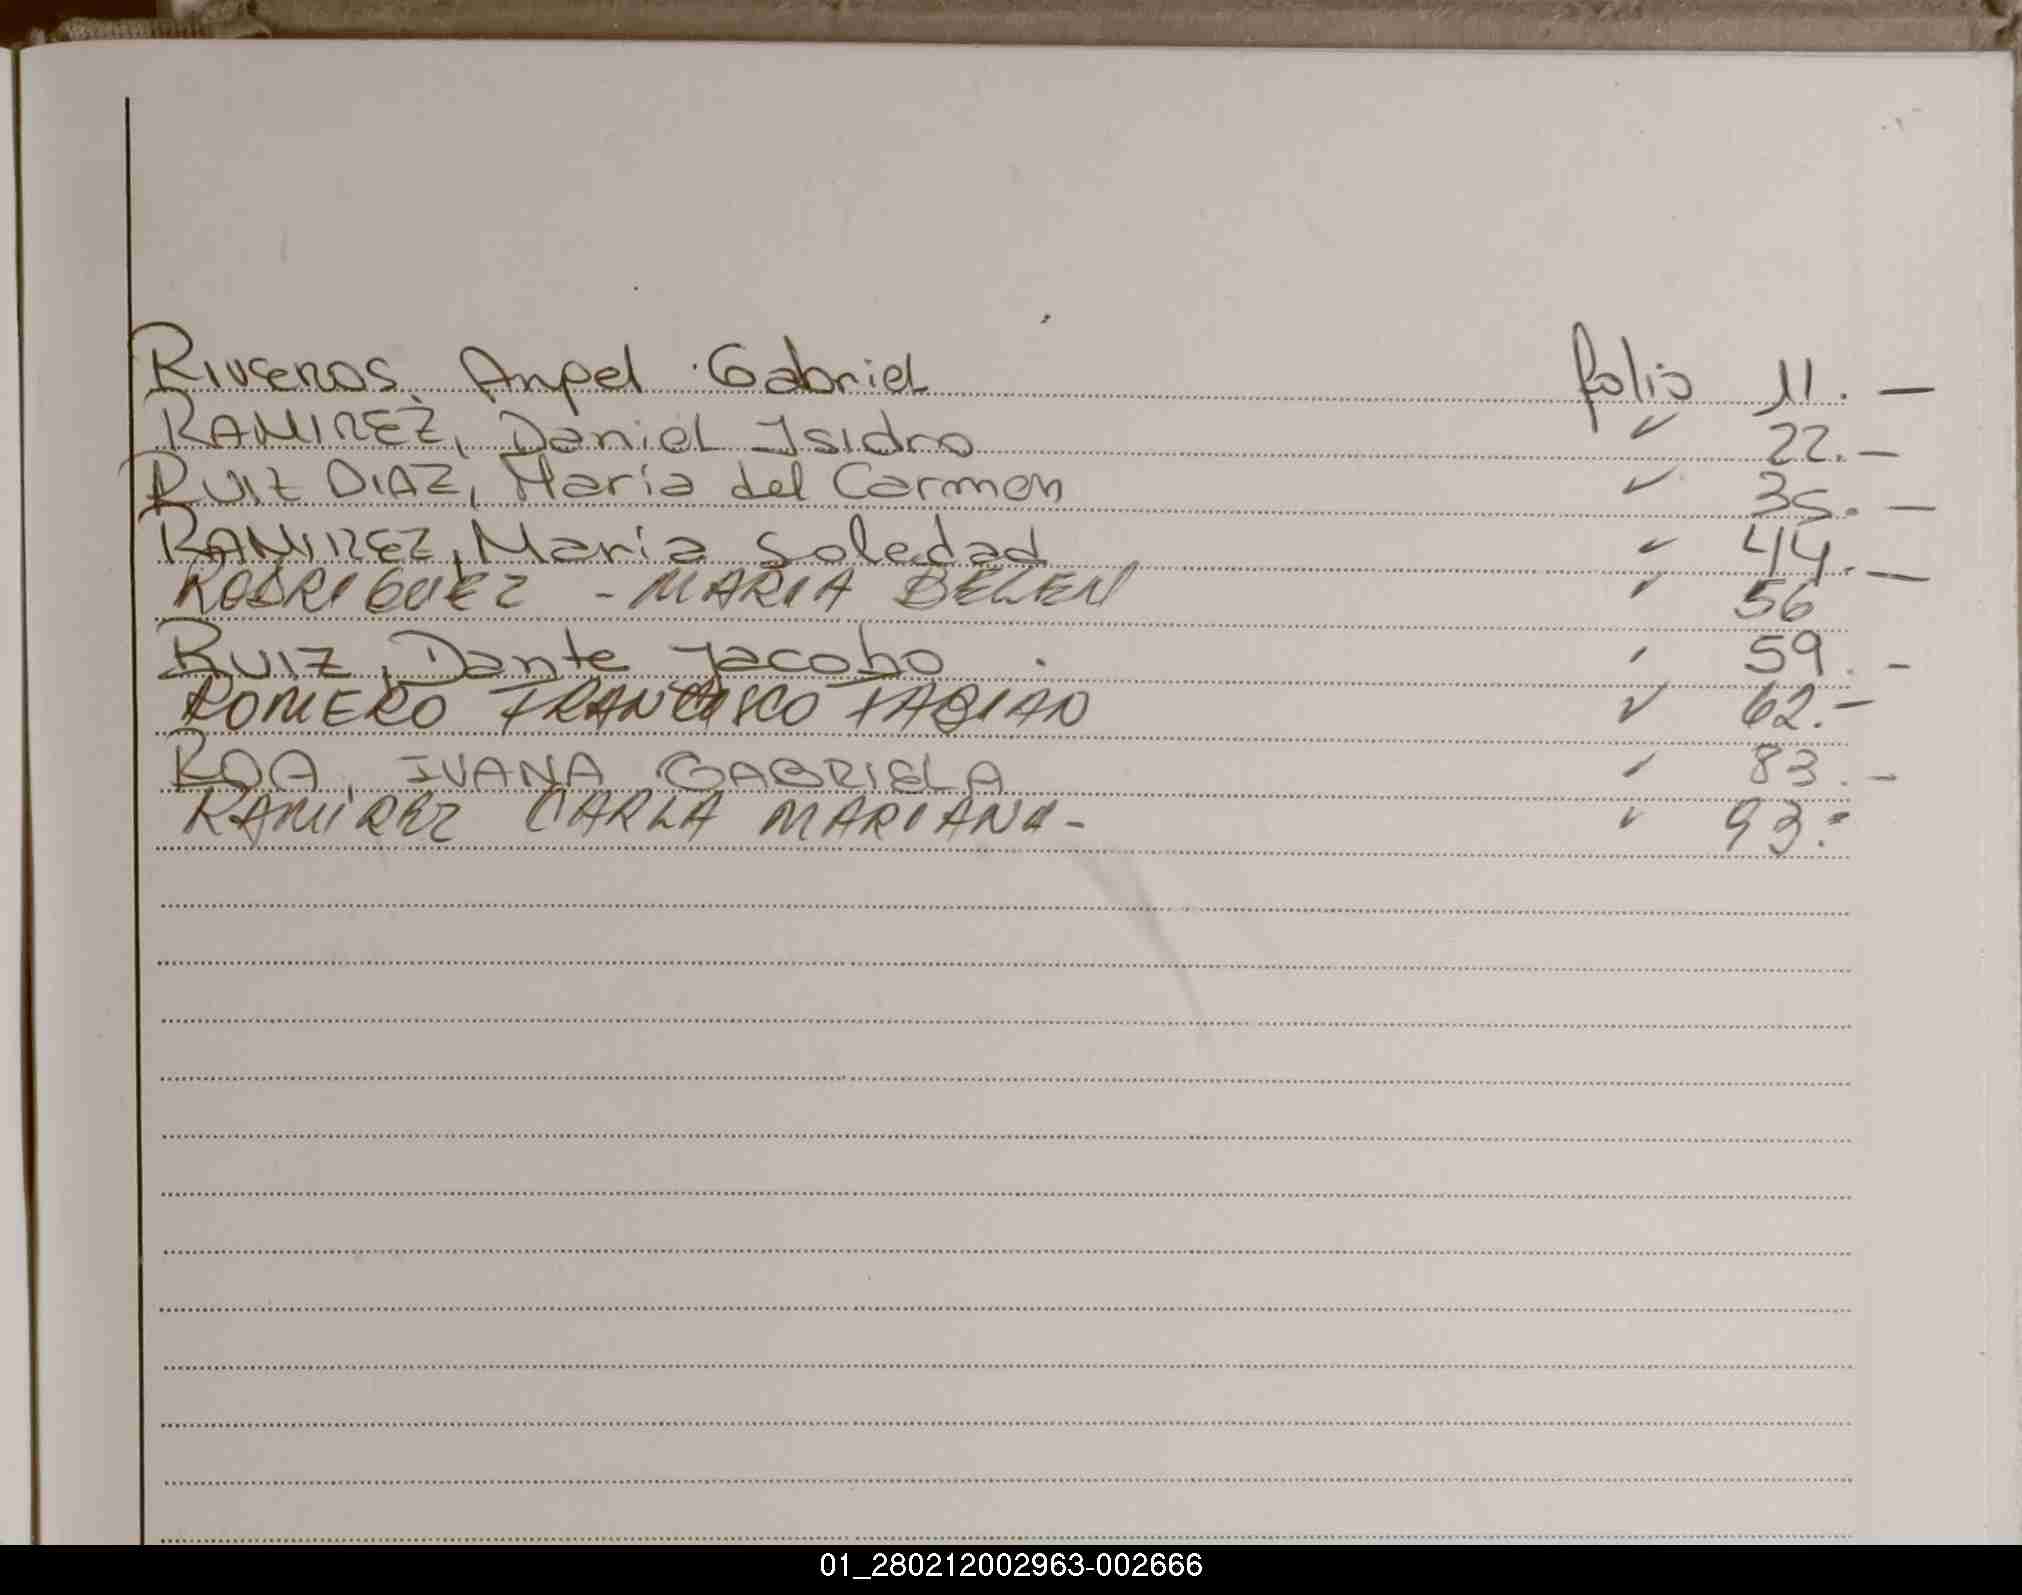 Riveros, Angel Gabriel folio 11.—
RAMIREZ, Daniel Isidro ✓ 22.—
RUIZ DIAZ, María del Carmen ✓ 35.—
RAMIREZ, María Soledad ✓ 44.—
RODRIGUEZ - MARIA BELEN ✓ 56
RUIZ, Dante Jacobo. ✓ 59.-
ROMERO FRANCISCO FABIAN ✓ 62.-
ROA, IVANA GABRIELA ✓ 83.-
RAMIREZ CARLA MARIANA- ✓ 93.-
01_280212002963-002666